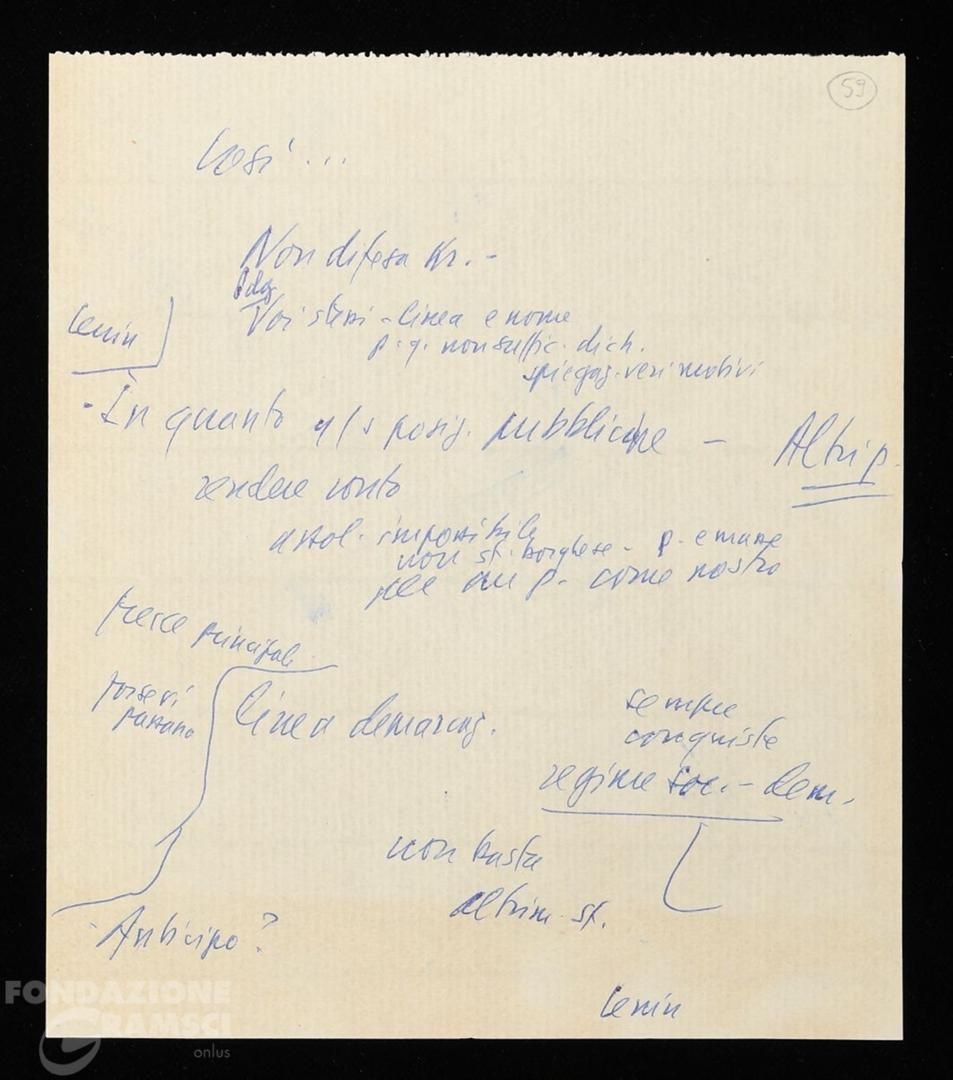 59
Così...
Non difesa Kr. -
Voi stessi - linea e nome
Lenin
p. q. non suffic. dich.
spiegaz. veri motivi
- In quanto posiz. pubbliche -
Altri p.
rendere conto
assol. impossibile
non st. borghese - p. e masse
per un p. come nostro
principali
forse vi
passano
linea demarcaz.
sempre
conquiste
regime soc. - dem.
non basta
altrim. st.
Anticipo?
Lenin
FONDAZIONE
GRAMSCI
onlus